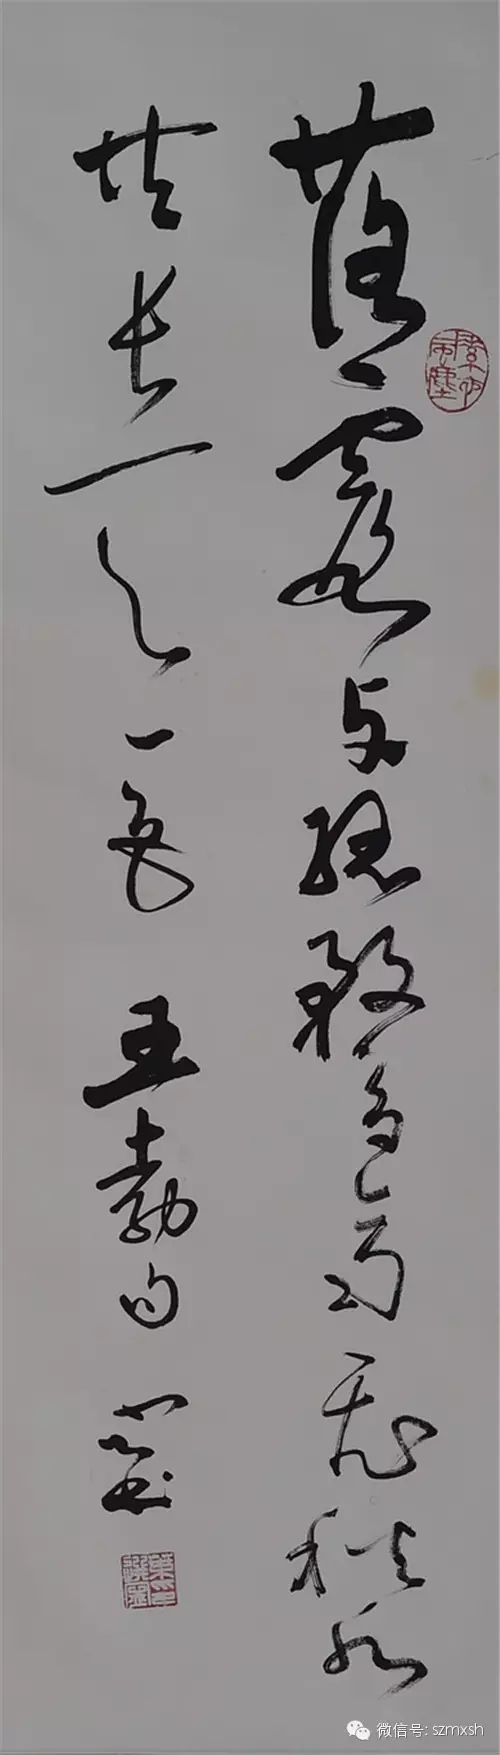 落霞与孤鹜齐飞秋水
共长天一色 王勃句
微信号: szmxsh